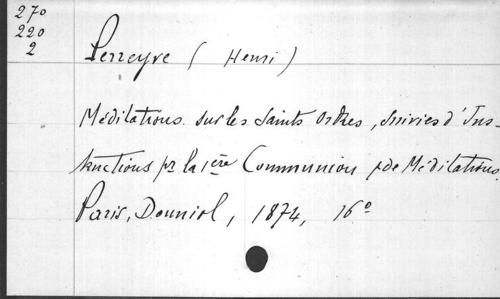 270
220
2
Perreyve (Henri)
Méditations sur les Saints Ordres, suivies d'Ins-
tructions pr la 1ère Communion & de Méditations.
Paris, Douniol, 1874, 16°